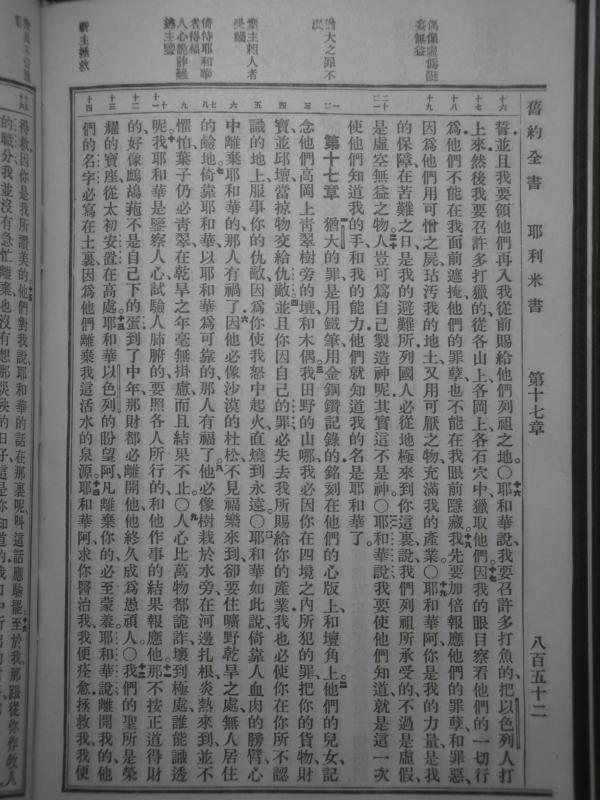 舊約全書
耶利米書
第十七章
八百五十二
偶像虛僞誕妄無益
猶大之罪不
者得福
倚恃耶和華
人心詭詐難
求主拯救
十六
十七
十八
十九
誓並且我要領他們再入我從前賜給他們列祖之地〇耶和華說我要召許多打魚的把以色列人打
上來然後我要召許多打獵的從各山上各岡上各石穴中獵取他們因我的眼目察看他們的一切行
爲他們不能在我面前遮掩他們的罪孽也不能在我眼前隱藏我先要加倍報應他們的罪孽和罪惡
因爲他們用可憎之屍玷汚我的地土又用可厭之物充滿我的產業〇耶和華阿你是我的力量是我
的保障在苦難之日是我的避難所列國人必從地極來到你這裏說我們列祖所承受的不過是虛假
是虛空無益之物人豈可爲自己製造神呢其實這不是神〇耶和華說我要使他們知道就是這一次
使他們知道我的手和我的能力他們就知道我的名是耶和華了
第十七章 猶大的罪是用鐵筆用金鋼鑽記錄的銘刻在他們的心版上和壇角上他們的兒女記
念他們高岡上靑翠樹旁的壇和木偶我田野的山哪我必因你在四境之內所犯的罪把你的貨物財
寶並邱壇當掠物交給仇敵並且你因自己的罪必失去我所賜給你的產業我也必使你在你所不認
識的地上服事你的仇敵因爲你使我怒中起火直燒到永遠〇耶和華如此說倚靠人血肉的膀臂心
中離棄耶和華的那人有禍了因他必像沙漠的杜松不見福樂來到卻要住曠野乾旱之處無人居住
的鹼地倚靠耶和華以耶和華爲可靠的那人有福了他必像樹栽於水旁在河邊扎根炎熱來到並不
懼怕葉子仍必靑翠在乾旱之年毫無掛慮而且結果不止〇人心比萬物都詭詐壞到極處誰能識透
呢我耶和華是鑒察人心試驗人肺腑的要照各人所行的和他作事的結果報應他那不按正道得財
的好像鷓鴣菢不是自己下的蛋到了中年那財都必離開他他終久成爲愚頑人〇我們的聖所是榮
耀的寶座從太初安置在高處耶和華以色列的盼望阿凡離棄你的必至蒙羞耶和華說離開我的他
們的名字必寫在土裏因爲他們離棄我這活水的泉源耶和華阿求你醫治我我便痊愈拯救我我便
得救因你是我所讚美的他們對我說耶和華的話在那裏呢叫這話應驗罷至於我那跟從你作牧人
的職分我並沒有急忙離棄也沒有想那災殃的日子這是你知道的